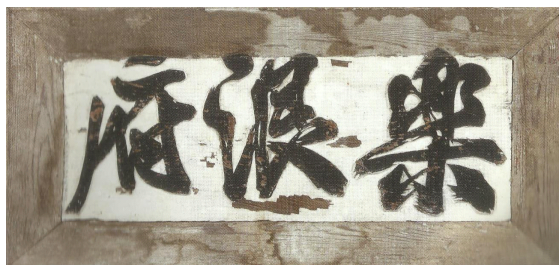 樂浪府